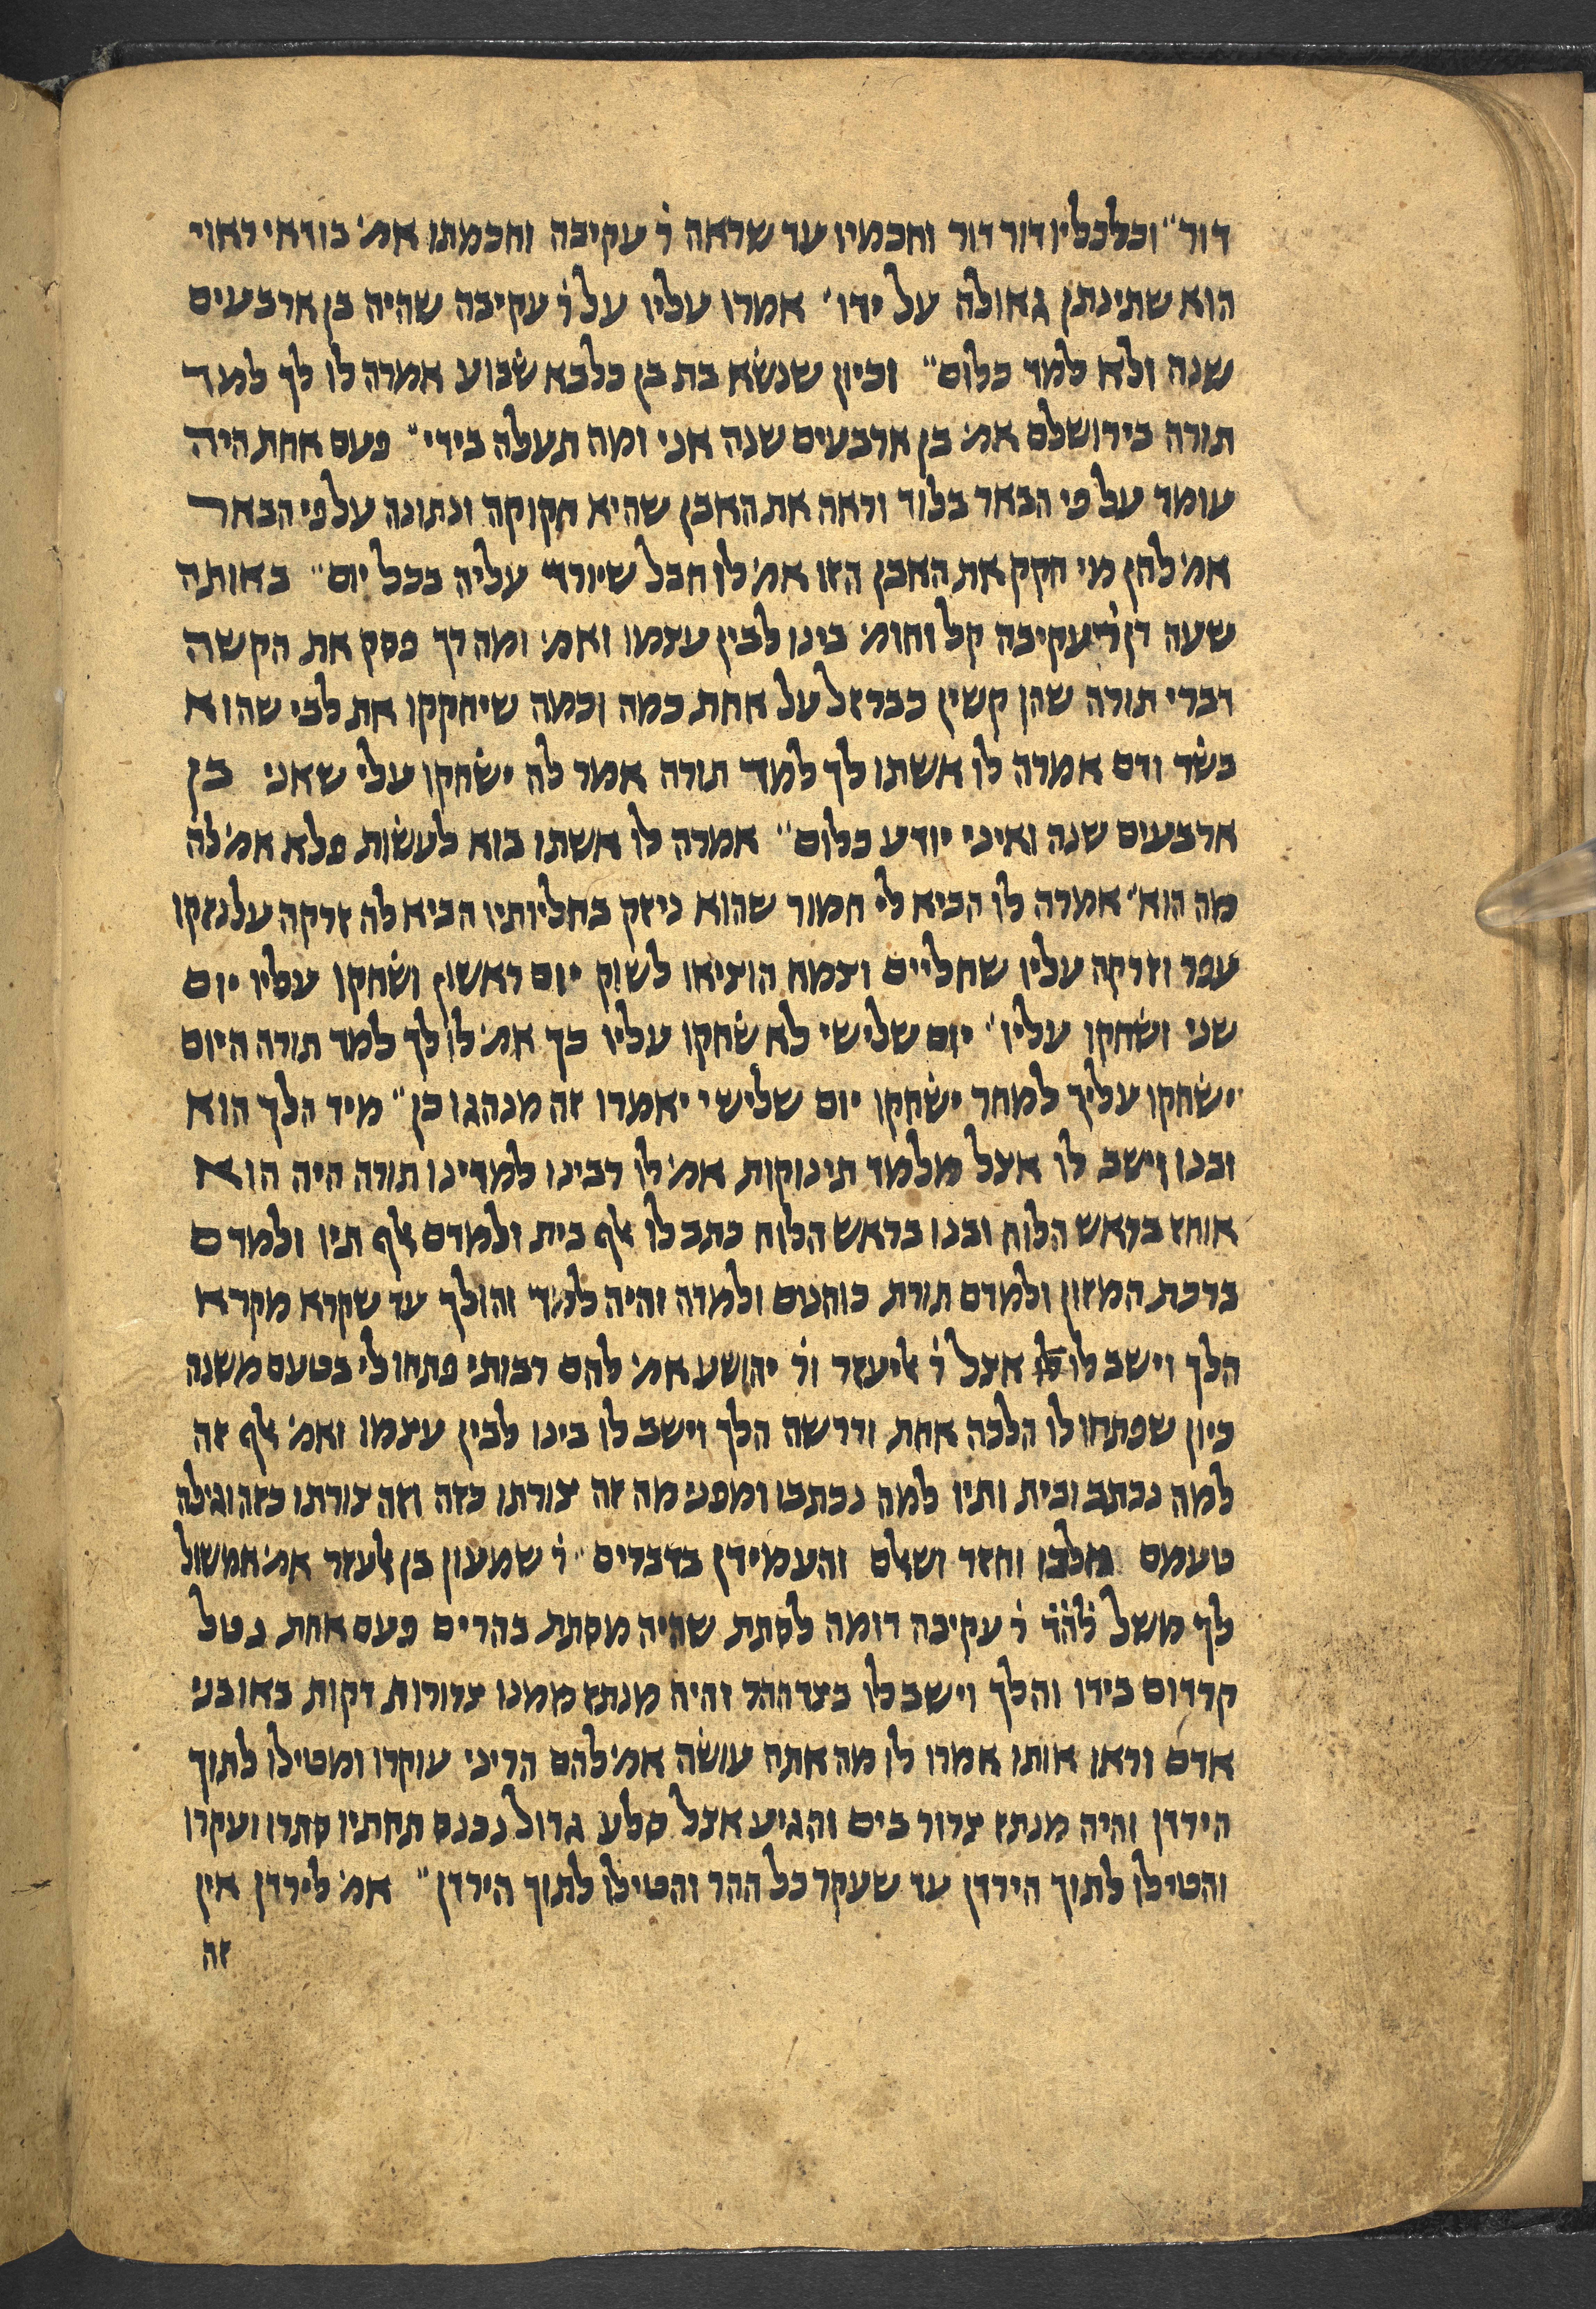 דור״ וכלכליו דור דור וחכמיו עד שראה ר׳ עקיבה וחכמתו אמ׳ בודאי ראוי
הוא שתינתן גאולה על ידו׳ אמרו עליו על ר׳ עקיבה שהיה בן ארבעים
שנה ולא למד כלום״ וכיון שנשא בת בן כלבא שבוע אמרה לו לך למד
תורה בירושלם אמ׳ בן ארבעים שנה אני ומה תעלה בידי״ פעם אחת היה
עומד על פי הבאר בלוד וראה את האבן שהיא חקוקה ונתונה על פי הבאר
אמ׳ להן מי חקק את האבן הזו אמ׳ לו חבל שיורד עליה בכל יום״ באותה
שעה דן ר׳ עקיבה קל וחומ׳ בינו לבין עצמו ואמ׳ ומה רך פסק את הקשה
דברי תורה שהן קשין כברזל על אחת כמה וכמה שיחקקו את לבי שהוא
בשר ודם אמרה לו אשתו לך למד תורה אמר לה ישחקו עלי שאני בן
ארבעים שנה ואיני יודע כלום״ אמרה לו אשתו בוא לעשות פלא אמ׳ לה
מה הוא׳ אמרה לו הביא לי חמור שהוא ניזק בחליותיו הביא לה זרקה על נזקו
עפר וזרקה עליו שחליים וצמח הוציאו לשוק יום ראשון ושחקו עליו יום
שני ושחקו עליו׳ יום שלישי לא שחקו עליו כך אמ׳ לו לך למד תורה היום
ישחקו עליך למחר ישחקו יום שלישי יאמרו זה מנהגו כן״ מיד הלך הוא
ובנו וישב לו אצל מלמד תינוקות אמ׳ לו רבינו למדינו תורה היה הוא
אוחז בראש הלוח ובנו בראש הלוח כתב לו אלף בית ולמדם אלף תיו ולמדם
ברכת המזון ולמדם תורת כוהנים ולמדה והיה למד והולך עד שקרא מקרא
הלך וישב לו אצל ר׳ אליעזר ור׳ יהושע אמ׳ להם רבותי פתחו לי בטעם משנה
כיון שפתחו לו הלכה אחת ודרשה הלך וישב לו בינו לבין עצמו ואמ׳ אלף זה
למה נכתב ובית ותיו למה נכתבו ומפני מה זה צורתו כזה וזה צורתו כזה וגילה
טעמם וחזר ושאלם והעמידן בדברים״ ר׳ שמעון בן אלעזר אמ׳ אמשול
לך משל ר׳ עקיבה דומה לסתת שהיה מסתת בהרים פעם אחת נטל
קרדום בידו והלך וישב לו בצד ההר והיה מנתז ממנו צרורות דקות באו בני
אדם וראו אותו אמרו לו מה אתה עושה אמ׳ להם הריני עוקרו ומטילו לתוך
הירדן והיה מנתז צרור בים והגיע אצל סלע גדול נכנס תחתיו סתרו ועקרו
והטילו לתוך הירדן עד שעקר כל ההר והטילו לתוך הירדן״ אמ׳ לירדן אין
זה